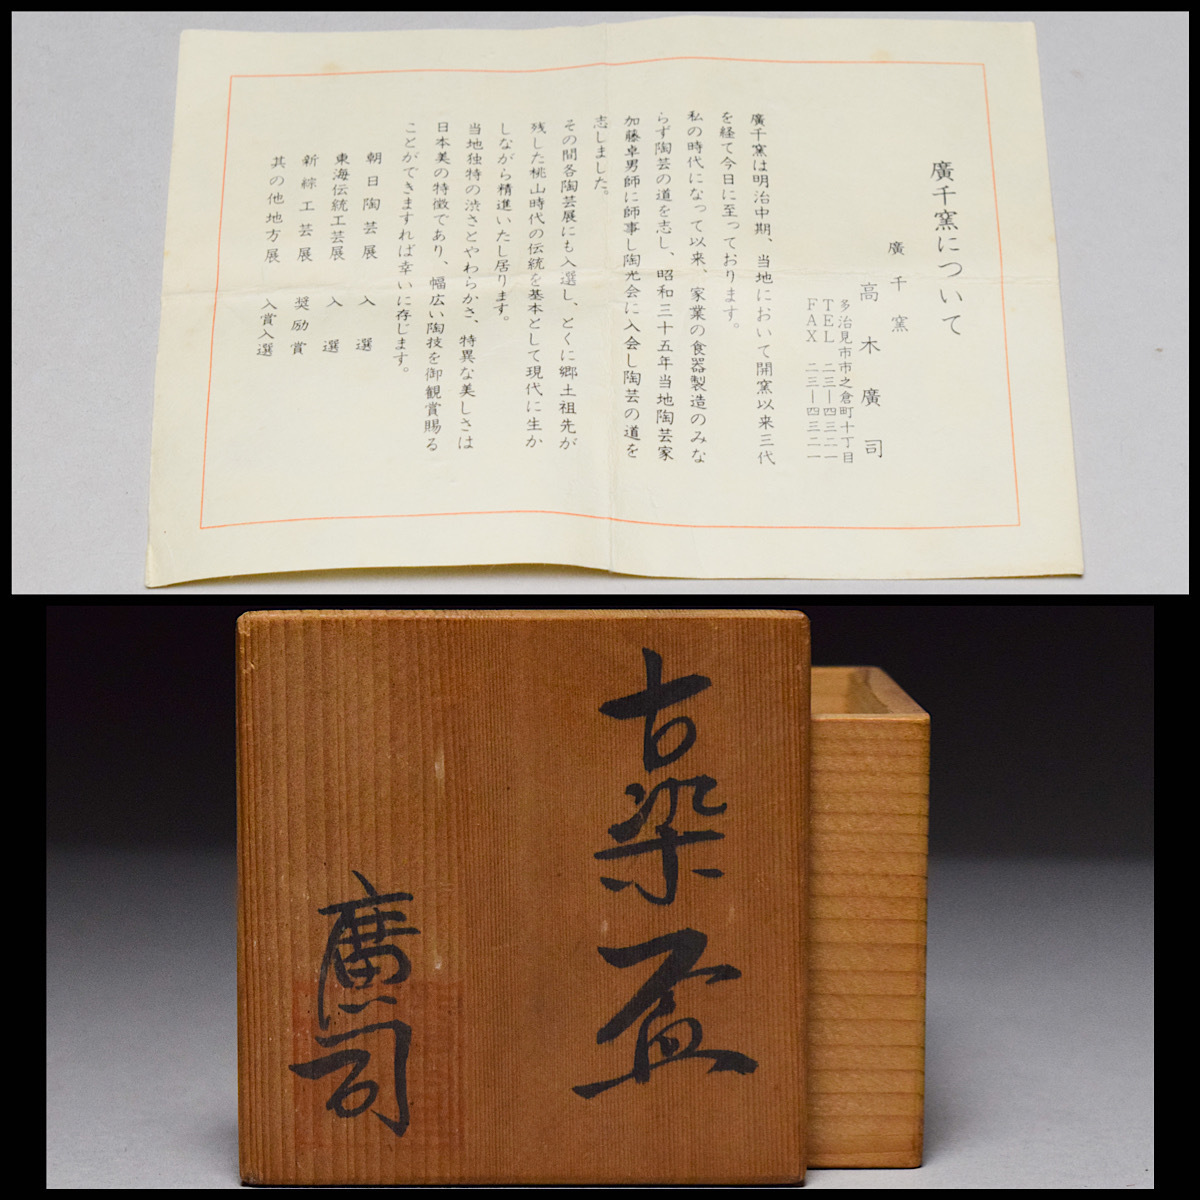 廣千窯について
廣千窯
高木廣司
多治見市市之倉町十丁目
TEL 二三ー四三二一
FAX 二三ー四三二一
廣千窯は明治中期、当地において開窯以来三代
を経て今日に至っております。
私の時代になって以来、家業の食器製造のみな
らず陶芸の道を志し、昭和三十五年当地陶芸家
加藤卓男師に師事し陶光会に入会し陶芸の道を
志しました。
その間各陶芸展にも入選し、とくに郷土祖先が
残した桃山時代の伝統を基本として現代に生か
しながら精進いたし居ります。
当地独特の渋さとやわらかさ、特異な美しさは
日本美の特徴であり、幅広い陶技を御観賞賜る
ことができますれば幸いに存じます。
朝日陶芸展 入選
東海伝統工芸展 入選
新綜工芸展 奨励賞
其の他地方展 入賞入選
古染盃
廣司